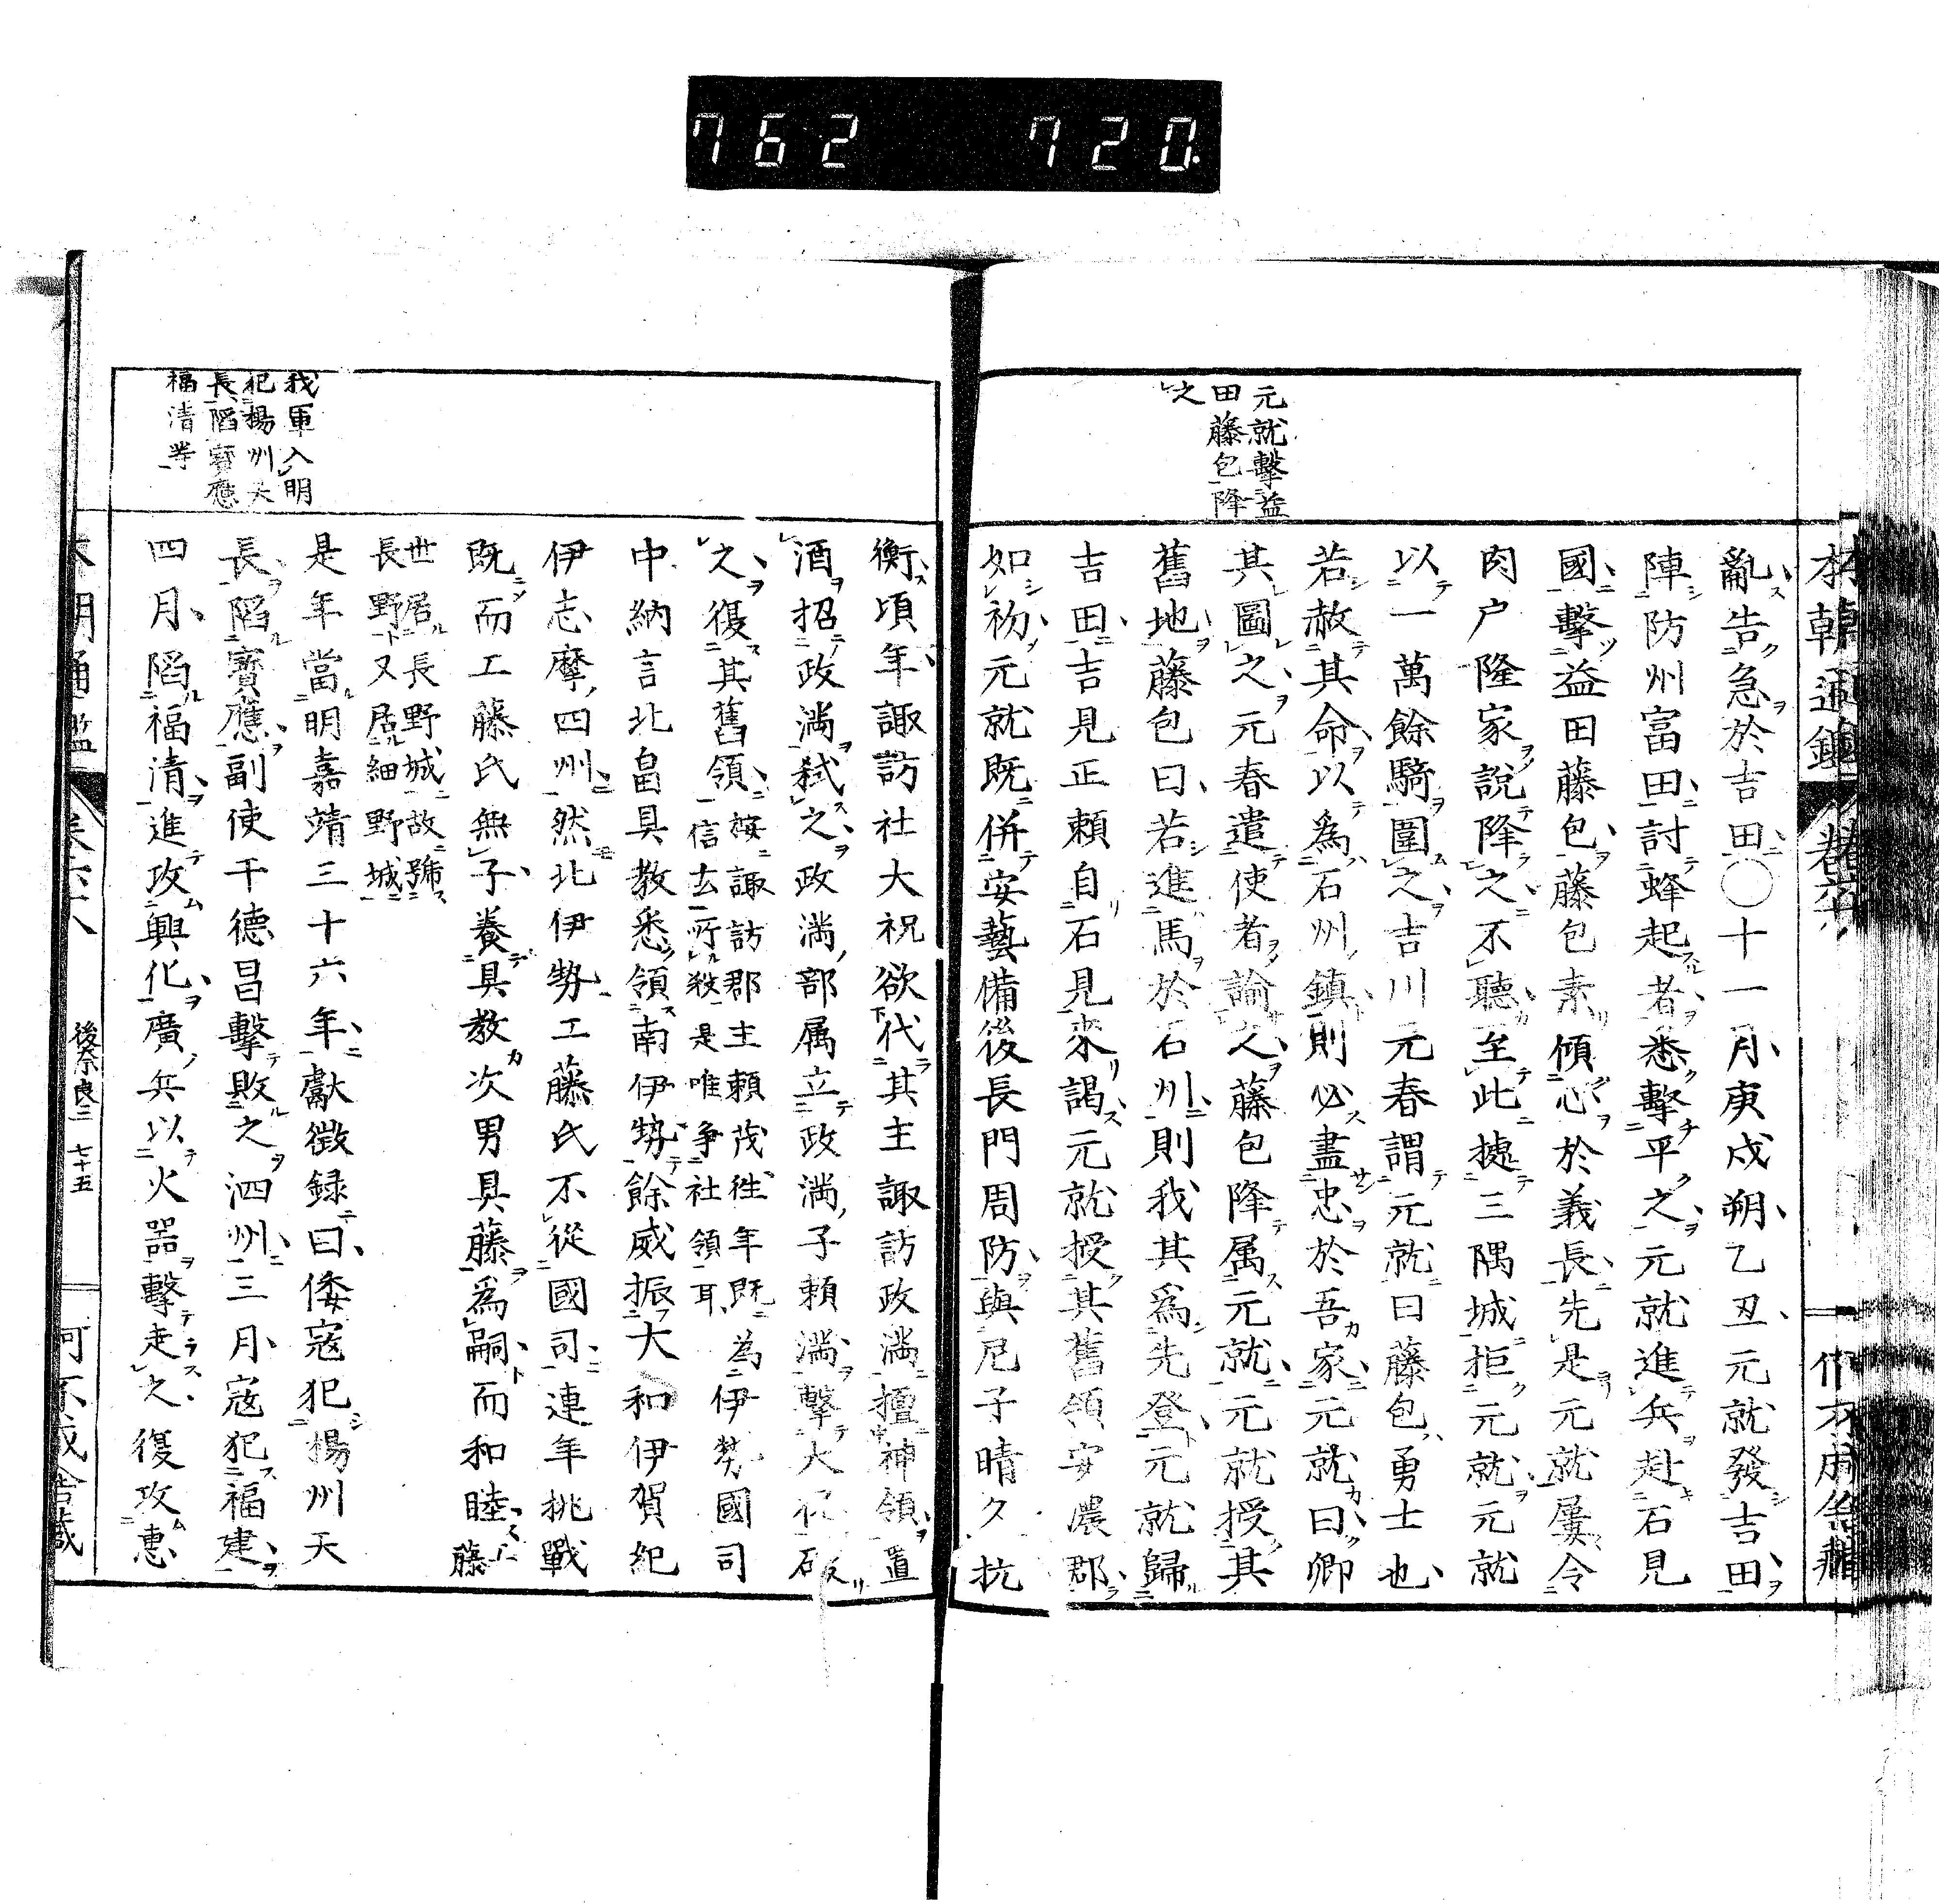 762 720.
元就擊益
田藤包降
之
亂告急於吉田〇十一月庚戌朔乙丑元就發吉田
陣防州富田討蜂起者悉擊平之元就進兵赴石見
國擊益田藤包藤包素傾心於義長先是元就屢令
宍戶隆家說降之不聽至此據三隅城拒元就元就
以一萬餘騎圍之吉川元春謂元就曰藤包勇士也
若赦其命以爲石州鎮則必盡忠於吾家元就曰卿
其圖之元春遣使者諭之藤包降属元就元就授其
舊地藤包曰若進馬於石州則我其爲先登元就歸
吉田吉見正頼自石見來謁元就授其舊領安濃郡
如初元就既併安藝備後長門周防與尼子晴久抗
衡頃年諏訪社大祝欲代其主諏訪政満擅神領置
酒招政満弑之政満部属立政満子頼満擊大祝
之復其舊領按諏訪郡主頼茂徃年既為伊勢國司
信玄所殺是唯争社領耳
中納言北畠具教悉領南伊勢餘威振大和伊賀紀
伊志摩四州然北伊勢工藤氏不從國司連年挑戰
既而工藤氏無子養具教次男具藤爲嗣而和睦藤
世居長野城故號
長野又居細野城
是年當明嘉靖三十六年獻徵録曰倭寇犯揚州天
長陷寳應副使于德昌擊敗之泗州三月寇犯福建
四月陷福清進攻興化廣兵以火器擊走之復攻惠
我軍入明
犯揚州天
長陷寳應
福清等
後奈良三 七十五